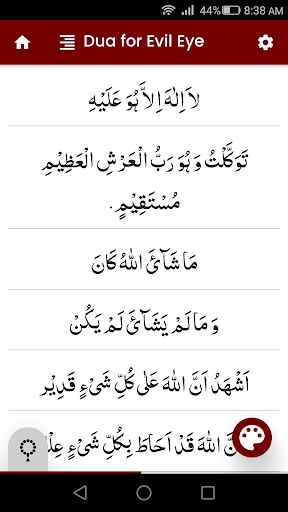 44% 8:38 AM
Dua for Evil Eye
لَا اِلٰهَ اِلاَّ هُوَ عَلَيْهِ
تَوَكَّلْتُ وَ هُوَ رَبُّ الْعَرْشِ الْعَظِيْمِ
مُسْتَقِيْمٍ .
مَا شَآئَ اللهُ كَانَ
وَ مَا لَمْ يَشَآئَ لَمْ يَكُنْ
اَشْهَدُ اَنَّ اللهَ عَلٰى كُلِّ شَیْءٍ قَدِيْر
اللهَ قَدْ اَحَاطَ بِكُلِّ شَیْءٍ